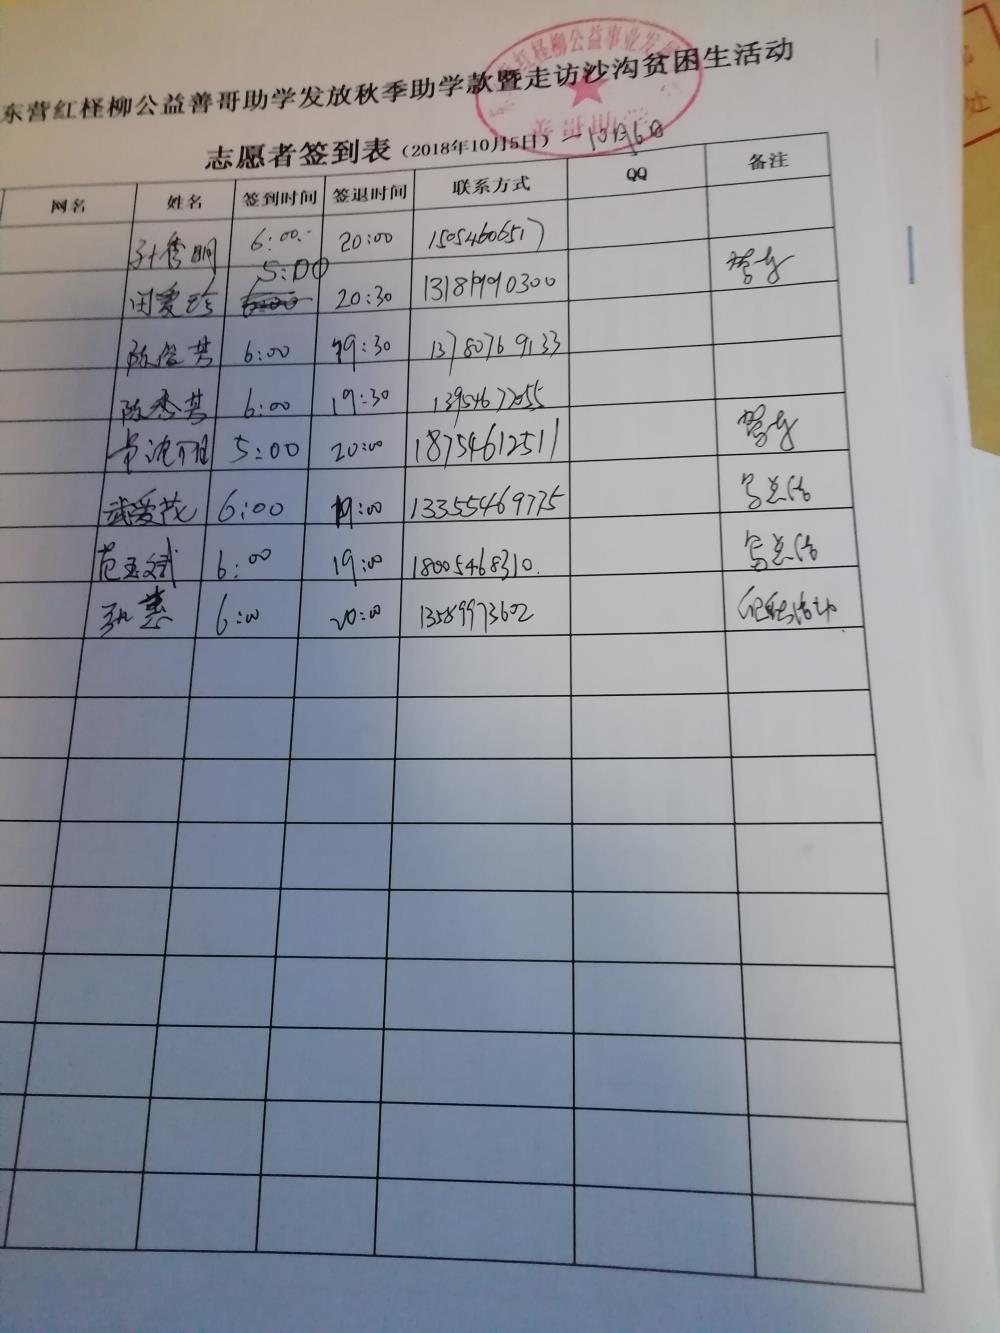 东营红柽柳公益善哥助学发放秋季助学款暨走访沙沟贫困生活动
红柽柳公益事业发
善哥助学
志愿者签到表（2018年10月5日）一10月6日
网名 姓名 签到时间 签退时间 联系方式 QQ 备注
孙秀明 6:00 20:00 15054606517
5:00 20:30 13181990300 驾车
陈俊芳 6:00 19:30 13780769133
陈秀芳 6:00 19:30 13954677055
5:00 20:00 18754612511 驾车
武爱茂 6:00 19:00 13355469775 写总结
范玉斌 6:00 19:00 18005468310. 写总结
6:00 20:00 13589973602 组织活动